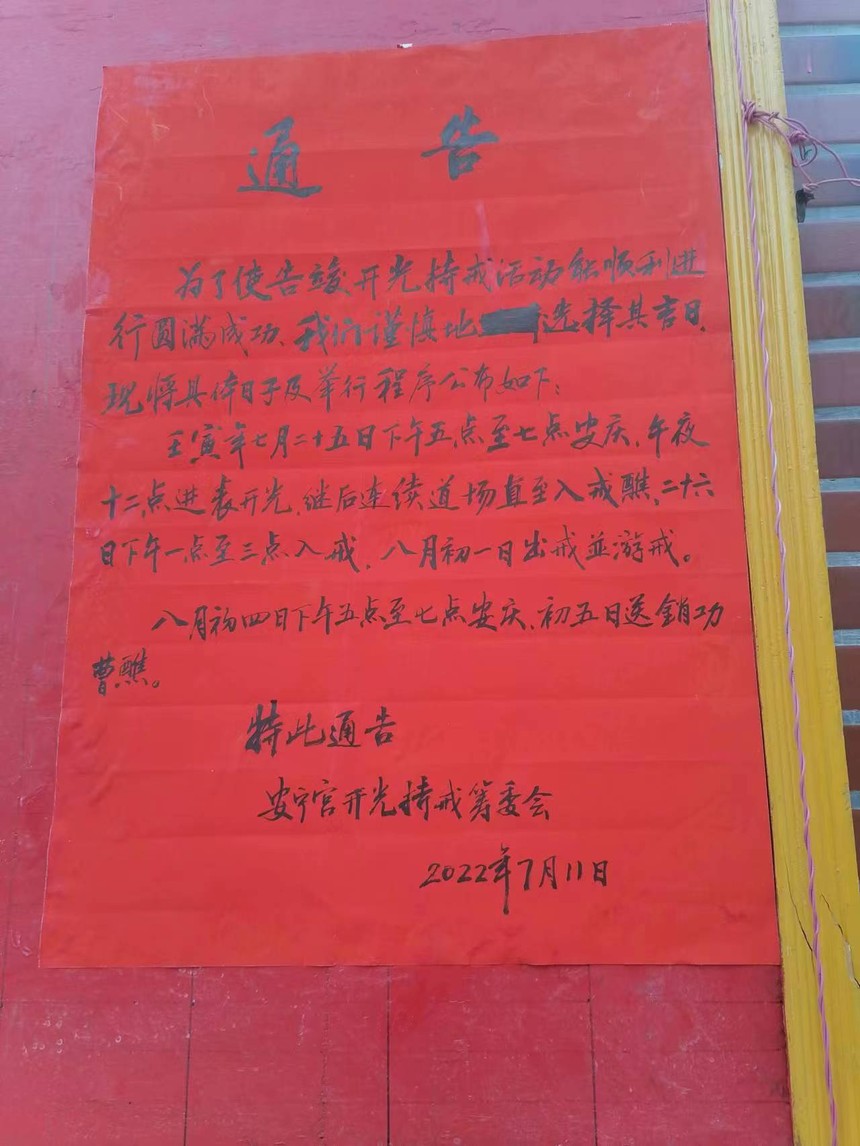 通告
为了使告竣开光持戒活动能顺利进
行圆满成功、我们谨慎地选择其吉日、
现将具体日子及举行程序公布如下：
壬寅年七月二十五日下午五点至七点安庆，午夜
十二点进表开光，继后连续道场直至入戒醮，二十六
日下午一点至三点入戒，八月初一日出戒並游戒。
八月初四日下午五点至七点安庆，初五日送銷功
曹醮。
特此通告
安宁宫开光持戒筹委会
2022年7月11日